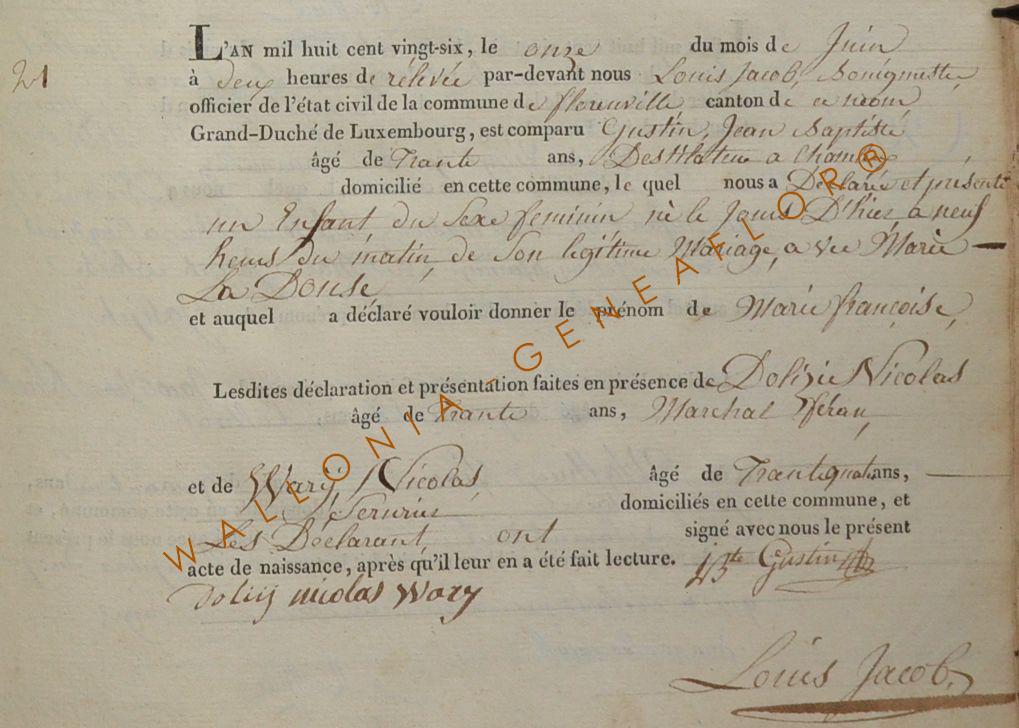 21
L'AN mil huit cent vingt-six, le onze du mois de Juin
à deux heures de rélévée par-devant nous Louis Jacob, Bouigmestre
officier de l'état civil de la commune de florenville canton de ce nom
Grand-Duché de Luxembourg, est comparu Gustin, Jean Baptiste
âgé de Trante ans, Destillateur a
domicilié en cette commune, le quel nous a Déclarée et présenté
un Enfant du Sexe feminin né le Jours D'hier, a neuf
heurs du matin de Son légitime Mariage, a vec Marie
La Douse,
et auquel a déclaré vouloir donner le prénom de Marie françoise,
Lesdites déclaration et présentation faites en présence de Dolizie Nicolas
âgé de Trante ans, Marchal fféran,
et de Wary, Nicolas, âgé de Trantquatr ans,
Serurier domiciliés en cette commune, et
Les Déclarant, ont signé avec nous le présent
acte de naissance, après qu'il leur en a été fait lecture. Bte Gustin
nicolas Wary
Louis Jacob.
WALLONIA - GENEAFLOR®